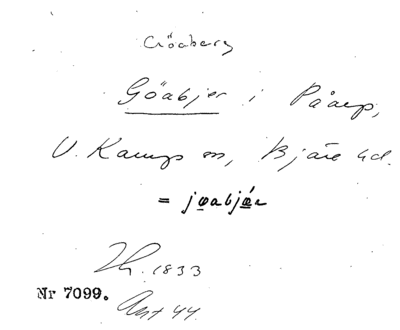 Göaberg
Göabjer i Påarp,
V. Karup sn, Bjäre hd.
= jøabjǿr
1833
Nr 7099.
Ant 44.